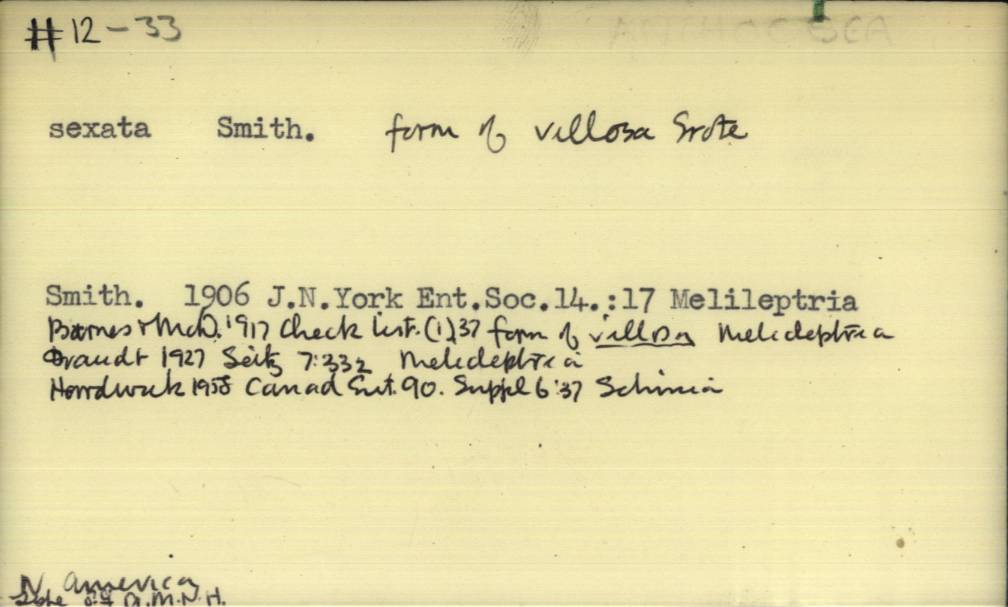 #12-33
sexata Smith. form of villosa Grote
Smith. 1906 J.N.York Ent.Soc.14.:17 Melileptria
Barnes & McD. 1917 Check List. (1) 37 form of villosa Melicleptria
Draudt 1927 Seitz 7:332 Melicleptria
Hardwick 1958 Canad Ent. 90. Suppl 6:37 Schinia
N. America
A.M.N.H.